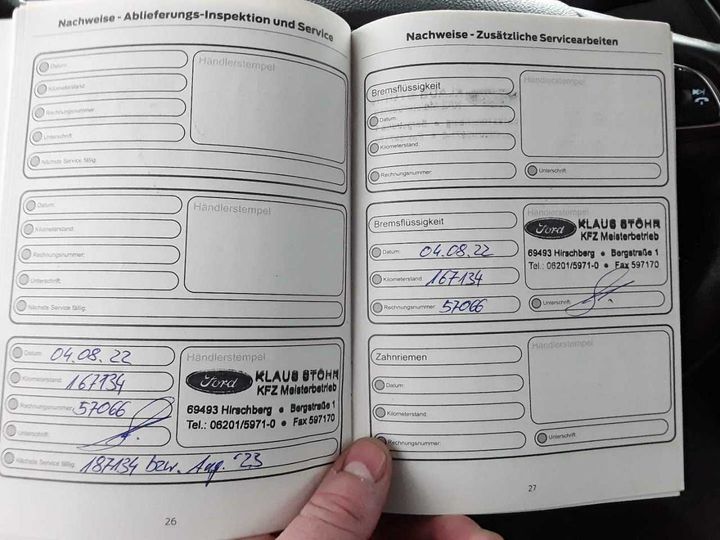 Nachweise - Ablieferungs-Inspektion und Service
Datum:
Kilometerstand:
Rechnungsnummer:
Unterschrift:
Nächste Service fällig:
Händlerstempel
Datum:
Kilometerstand:
Rechnungsnummer:
Unterschrift:
Nächste Service fällig:
Händlerstempel
Datum: 04.08.22
Kilometerstand: 167134
Rechnungsnummer: 57066
Unterschrift:
Nächste Service fällig: 187134 bzw. Aug. '23
Händlerstempel
Ford KLAUS STÖHR
KFZ Meisterbetrieb
69493 Hirschberg • Bergstraße 1
Tel.: 06201/5971-0 • Fax 597170
26
Nachweise - Zusätzliche Servicearbeiten
Bremsflüssigkeit
Datum:
Kilometerstand:
Rechnungsnummer:
Händlerstempel
Unterschrift:
Bremsflüssigkeit
Datum: 04.08.22
Kilometerstand: 167134
Rechnungsnummer: 57066
Händlerstempel
Ford KLAUS STÖHR
KFZ Meisterbetrieb
69493 Hirschberg • Bergstraße 1
Tel.: 06201/5971-0 • Fax 597170
Unterschrift:
Zahnriemen
Datum:
Kilometerstand:
Rechnungsnummer:
Händlerstempel
Unterschrift:
27